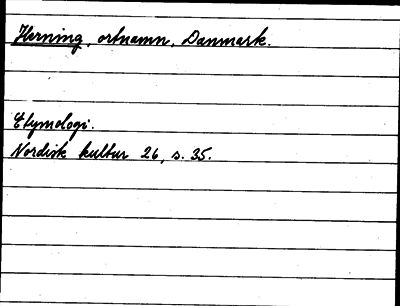 Herning, ortnamn, Danmark.
Etymologi.
Nordisk kultur 26, s. 35.